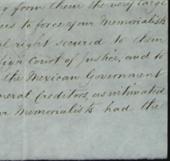 from them the very large
to force of our Memorialists
right secured to them
High Court of Justice, and to
the Mexican Government
General Creditors, as intimated
Memorialists had the